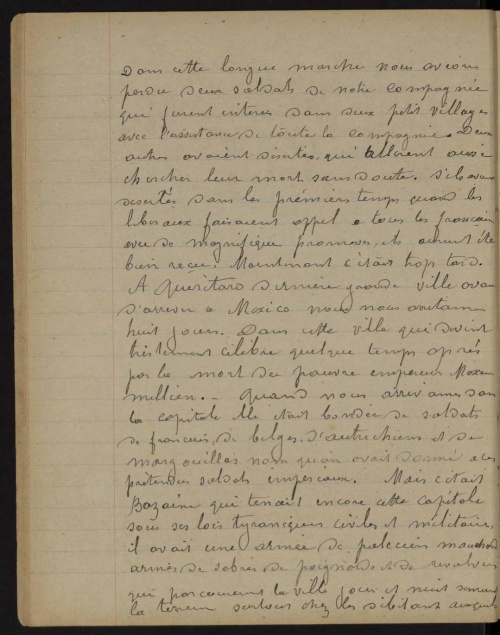 Dans cette longue marche nous avions
perdu deux soldats de notre compagnie
qui furent enteres dans deux petit villages
avec l'assistance de toute la compagnie. Deux
autres avaient désertés, qui allèrent aussi
chercher leur mort sans doute. S'ils avaient
desertés dans les prémiers temps quand les
liberaux faisaient appel a tous les francais
avec de magnifique promesses, ils auraient été
bien recu. Maintenant c'était trop tard.
A Quérétaro dernière grande ville avant
d'arriver a Mexico nous nous arretames
huit jours. Dans cette ville qui devint
tristement célèbre quelque temps après
par la mort du pauvre empereur Maxi
millien. - Quand nous arrivames dans
la capitale Elle était bondée de soldats
de francais, de belges, d'autrichiens et de
margouillas nom qu'on avait donné a ces
prétendus soldats impériaux. Mais c'était
Bazaine qui tenait encore cette capitale
sous ses lois tyranniques civiles et militaires,
il avait une armée de policiers
armés de sabres de poignards et de revolvers
qui parcouraient la ville jour et nuit semant
la terreur surtout chez les